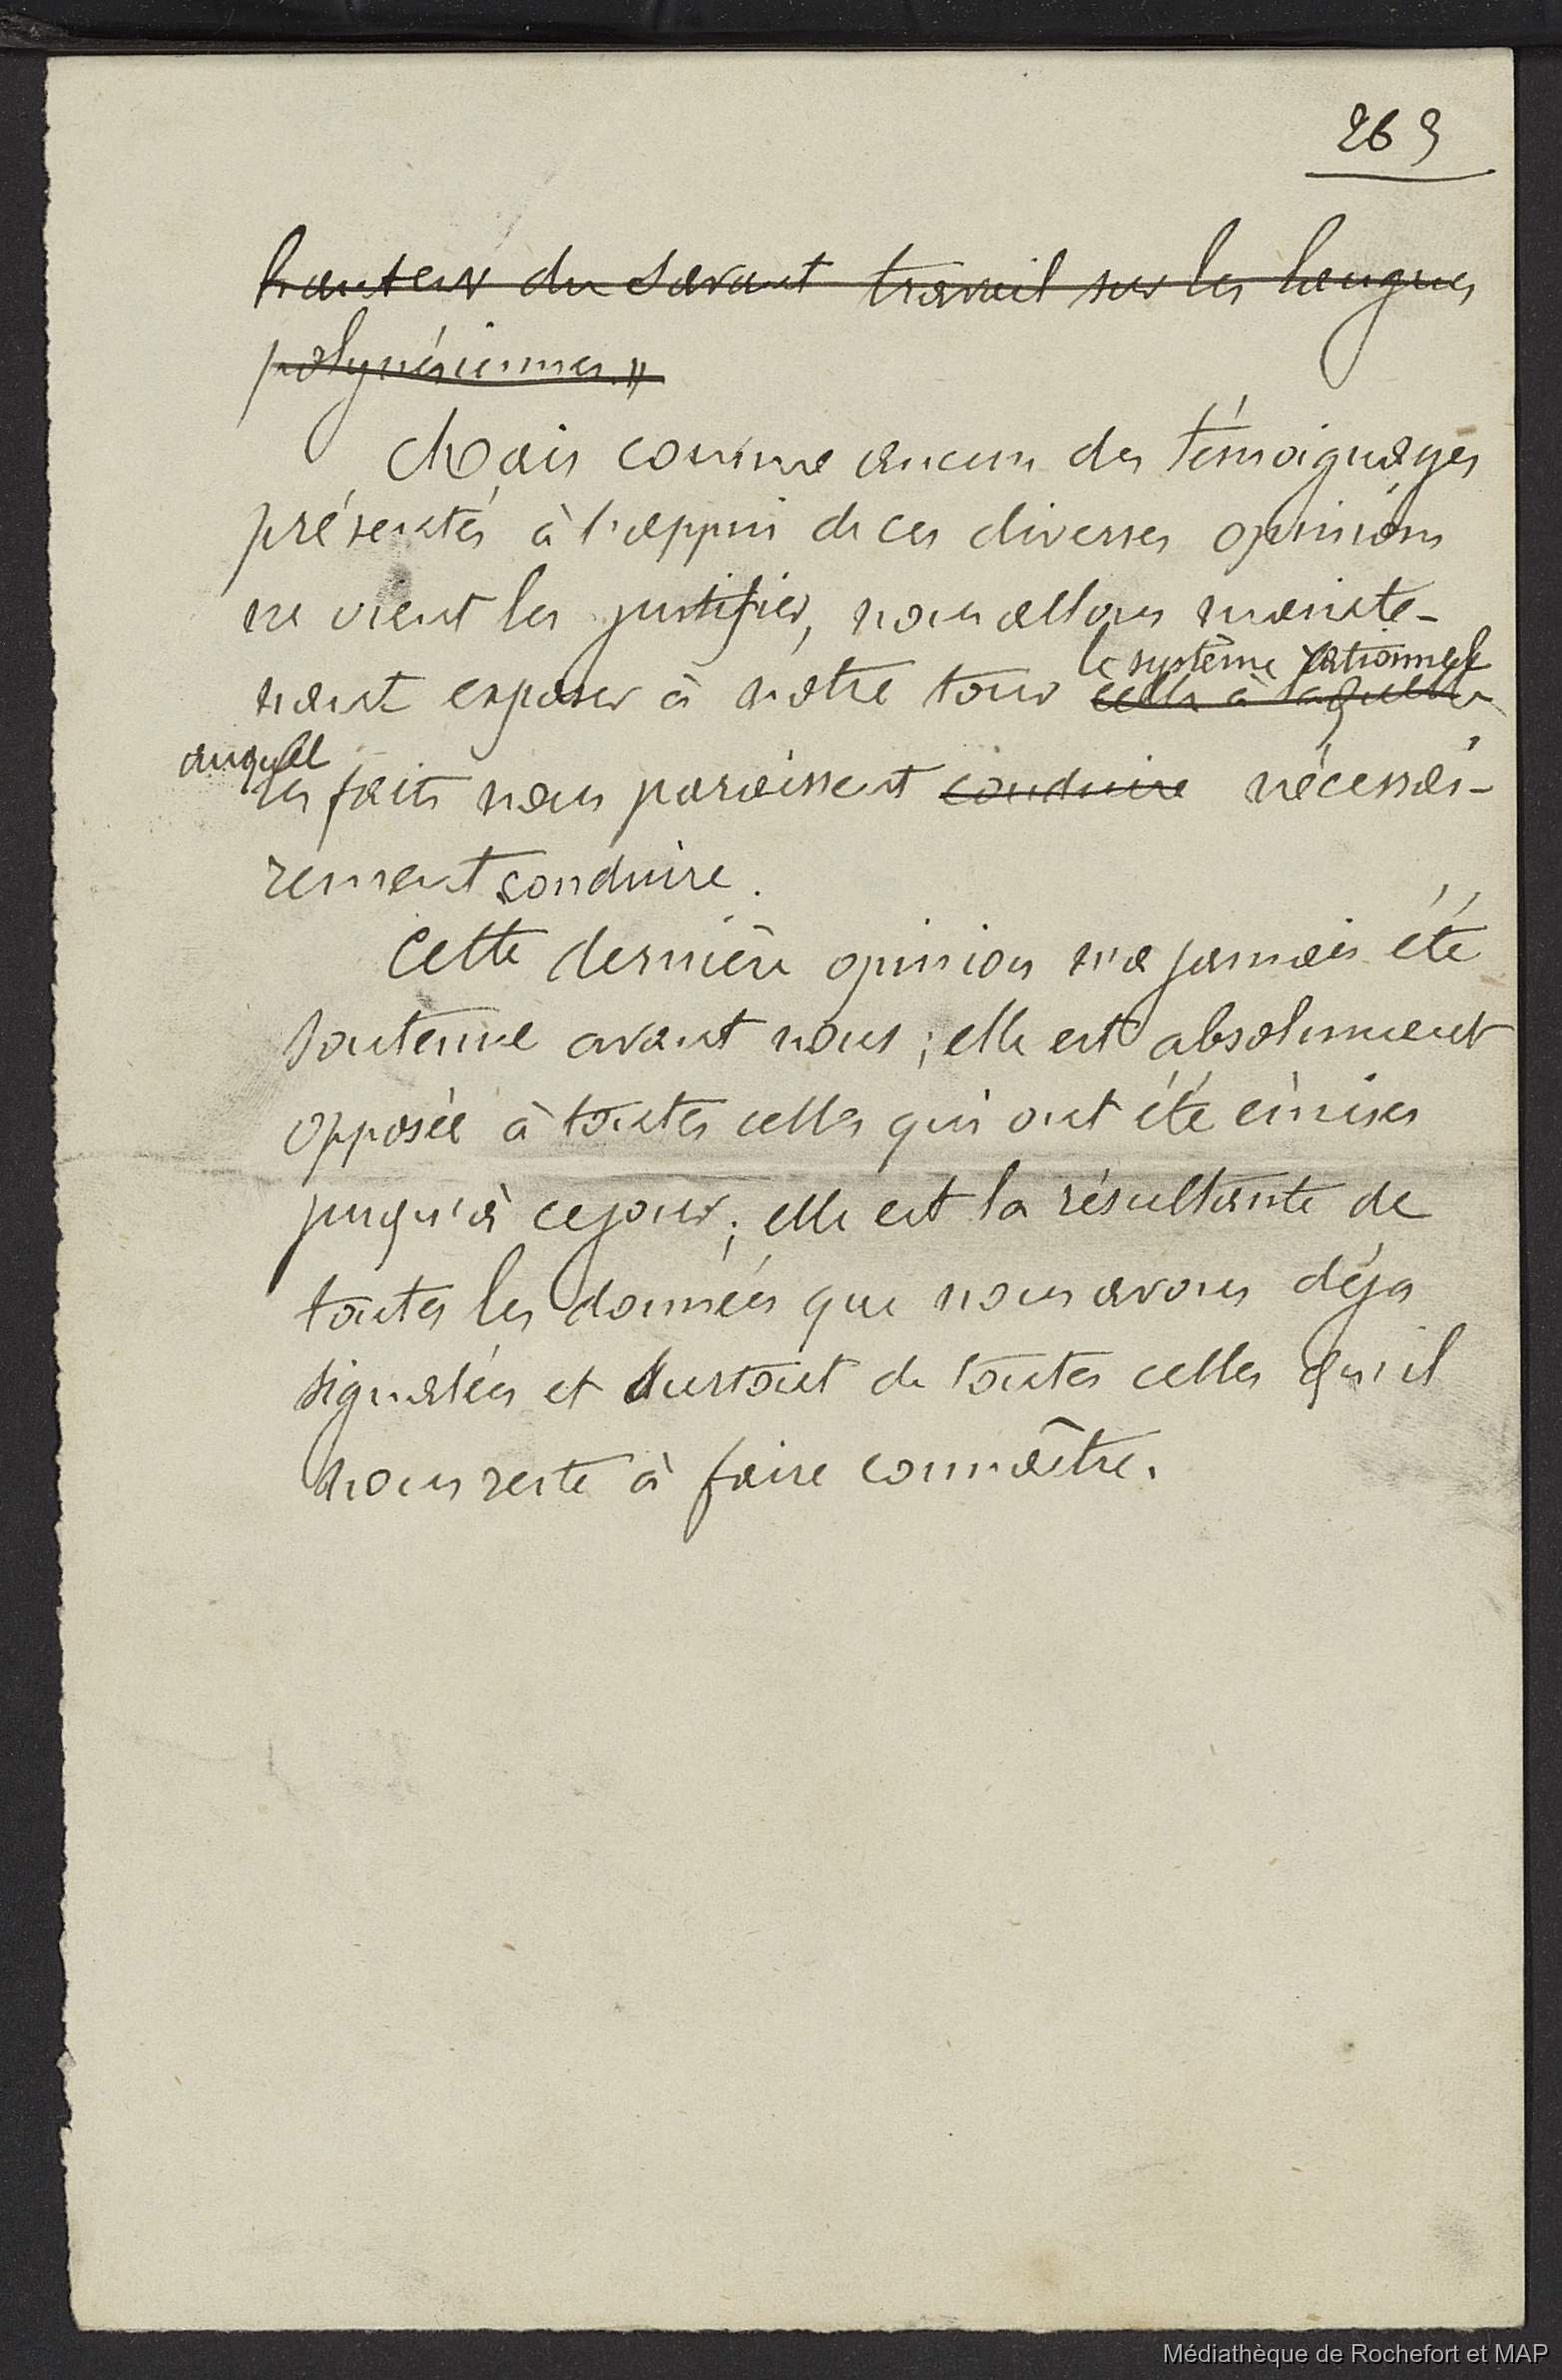 263
l'auteur du savant travail sur les langues
polynésiennes."
Mais comme aucun des témoignages
présentés à l'appui de ces diverses opinions
ne vient les justifier, nous allons mainte-
le système rationnel
nant exposer à notre tour celle à laquelle
auquel
les faits nous paraissent conduire nécessai-
rement conduire.
Cette dernière opinion n'a jamais été
soutenue avant nous ; elle est absolument
opposée à toutes celles qui ont été émises
jusqu'à ce jour ; elle est la résultante de
toutes les données que nous avons déja
signalées et surtout de toutes celles qu'il
nous reste à faire connaître.
Médiathèque de Rochefort et MAP